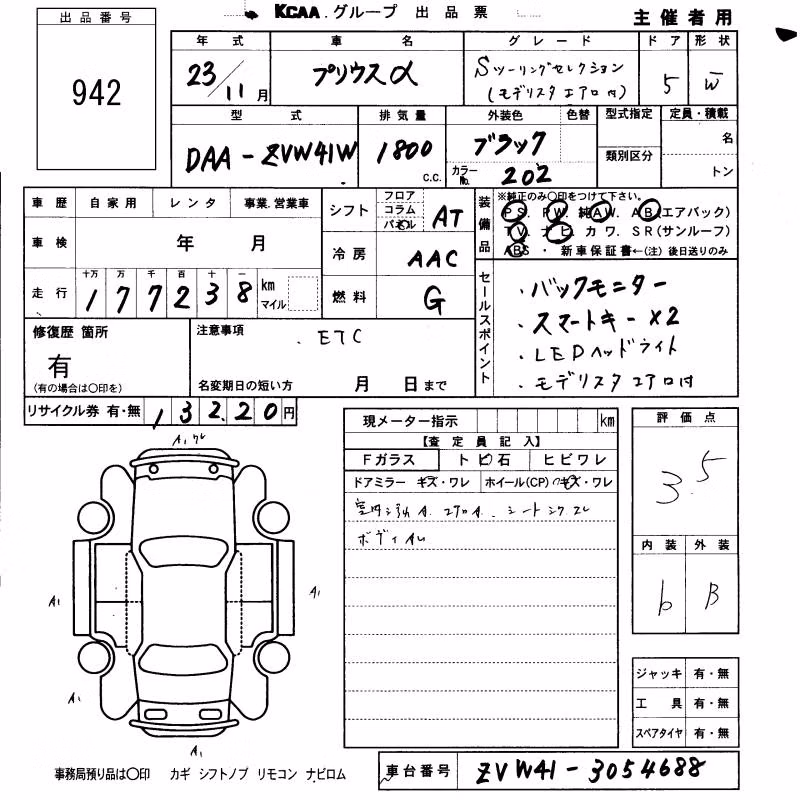 KCAA.グループ 出品票
主催者用
出品番号
942
年式 車名 グレード ドア 形状
23/11月 プリウスα Sツーリングセレクション 5 W
(モデリスタエアロ付)
型式 排気量 外装色 色替 型式指定 定員・積載
DAA-ZVW41W 1800 c.c. ブラック 名
カラーNo. 202 類別区分 トン
車歴 自家用 レンタ 事業.営業車
車検 年 月
走行 十万 万 千 百 十 一
177238 km マイル
シフト フロア コラム パネル AT
冷房 AAC
燃料 G
装備品 ※純正のみ〇印をつけて下さい。
PS. PW. 純AW. AB(エアバック)
TV. ナビ カワ. SR(サンルーフ)
ABS ・ 新車保証書←(注) 後日送りのみ
セールスポイント
・バックモニター
・スマートキー×2
・LEDヘッドライト
・モデリスタエアロ付
修復歴 箇所
有
(有の場合は〇印を)
注意事項
.ETC
名変期日の短い方 月 日まで
リサイクル券 有・無 13220円
現メーター指示 km
【査定員記入】
Fガラス トビ石 ヒビワレ
ドアミラー キズ・ワレ ホイール(CP) キズ・ワレ
ボディAU
評価点
3.5
内装 外装
b B
ジャッキ 有・無
工具 有・無
スペアタイヤ 有・無
A1
A1
A1
A1
A1
事務局預り品は〇印 カギ シフトノブ リモコン ナビロム
車台番号 ZVW41-3054688